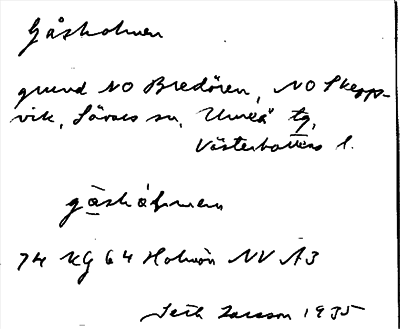 Gåsholmen
grund NO Bredören, NO Skepps-
vik, Sävars sn, Umeå tg,
Västerbottens l.
gåshåɫmen
74 KG 64 Holmön NV Å3
Seth Larsson 1935